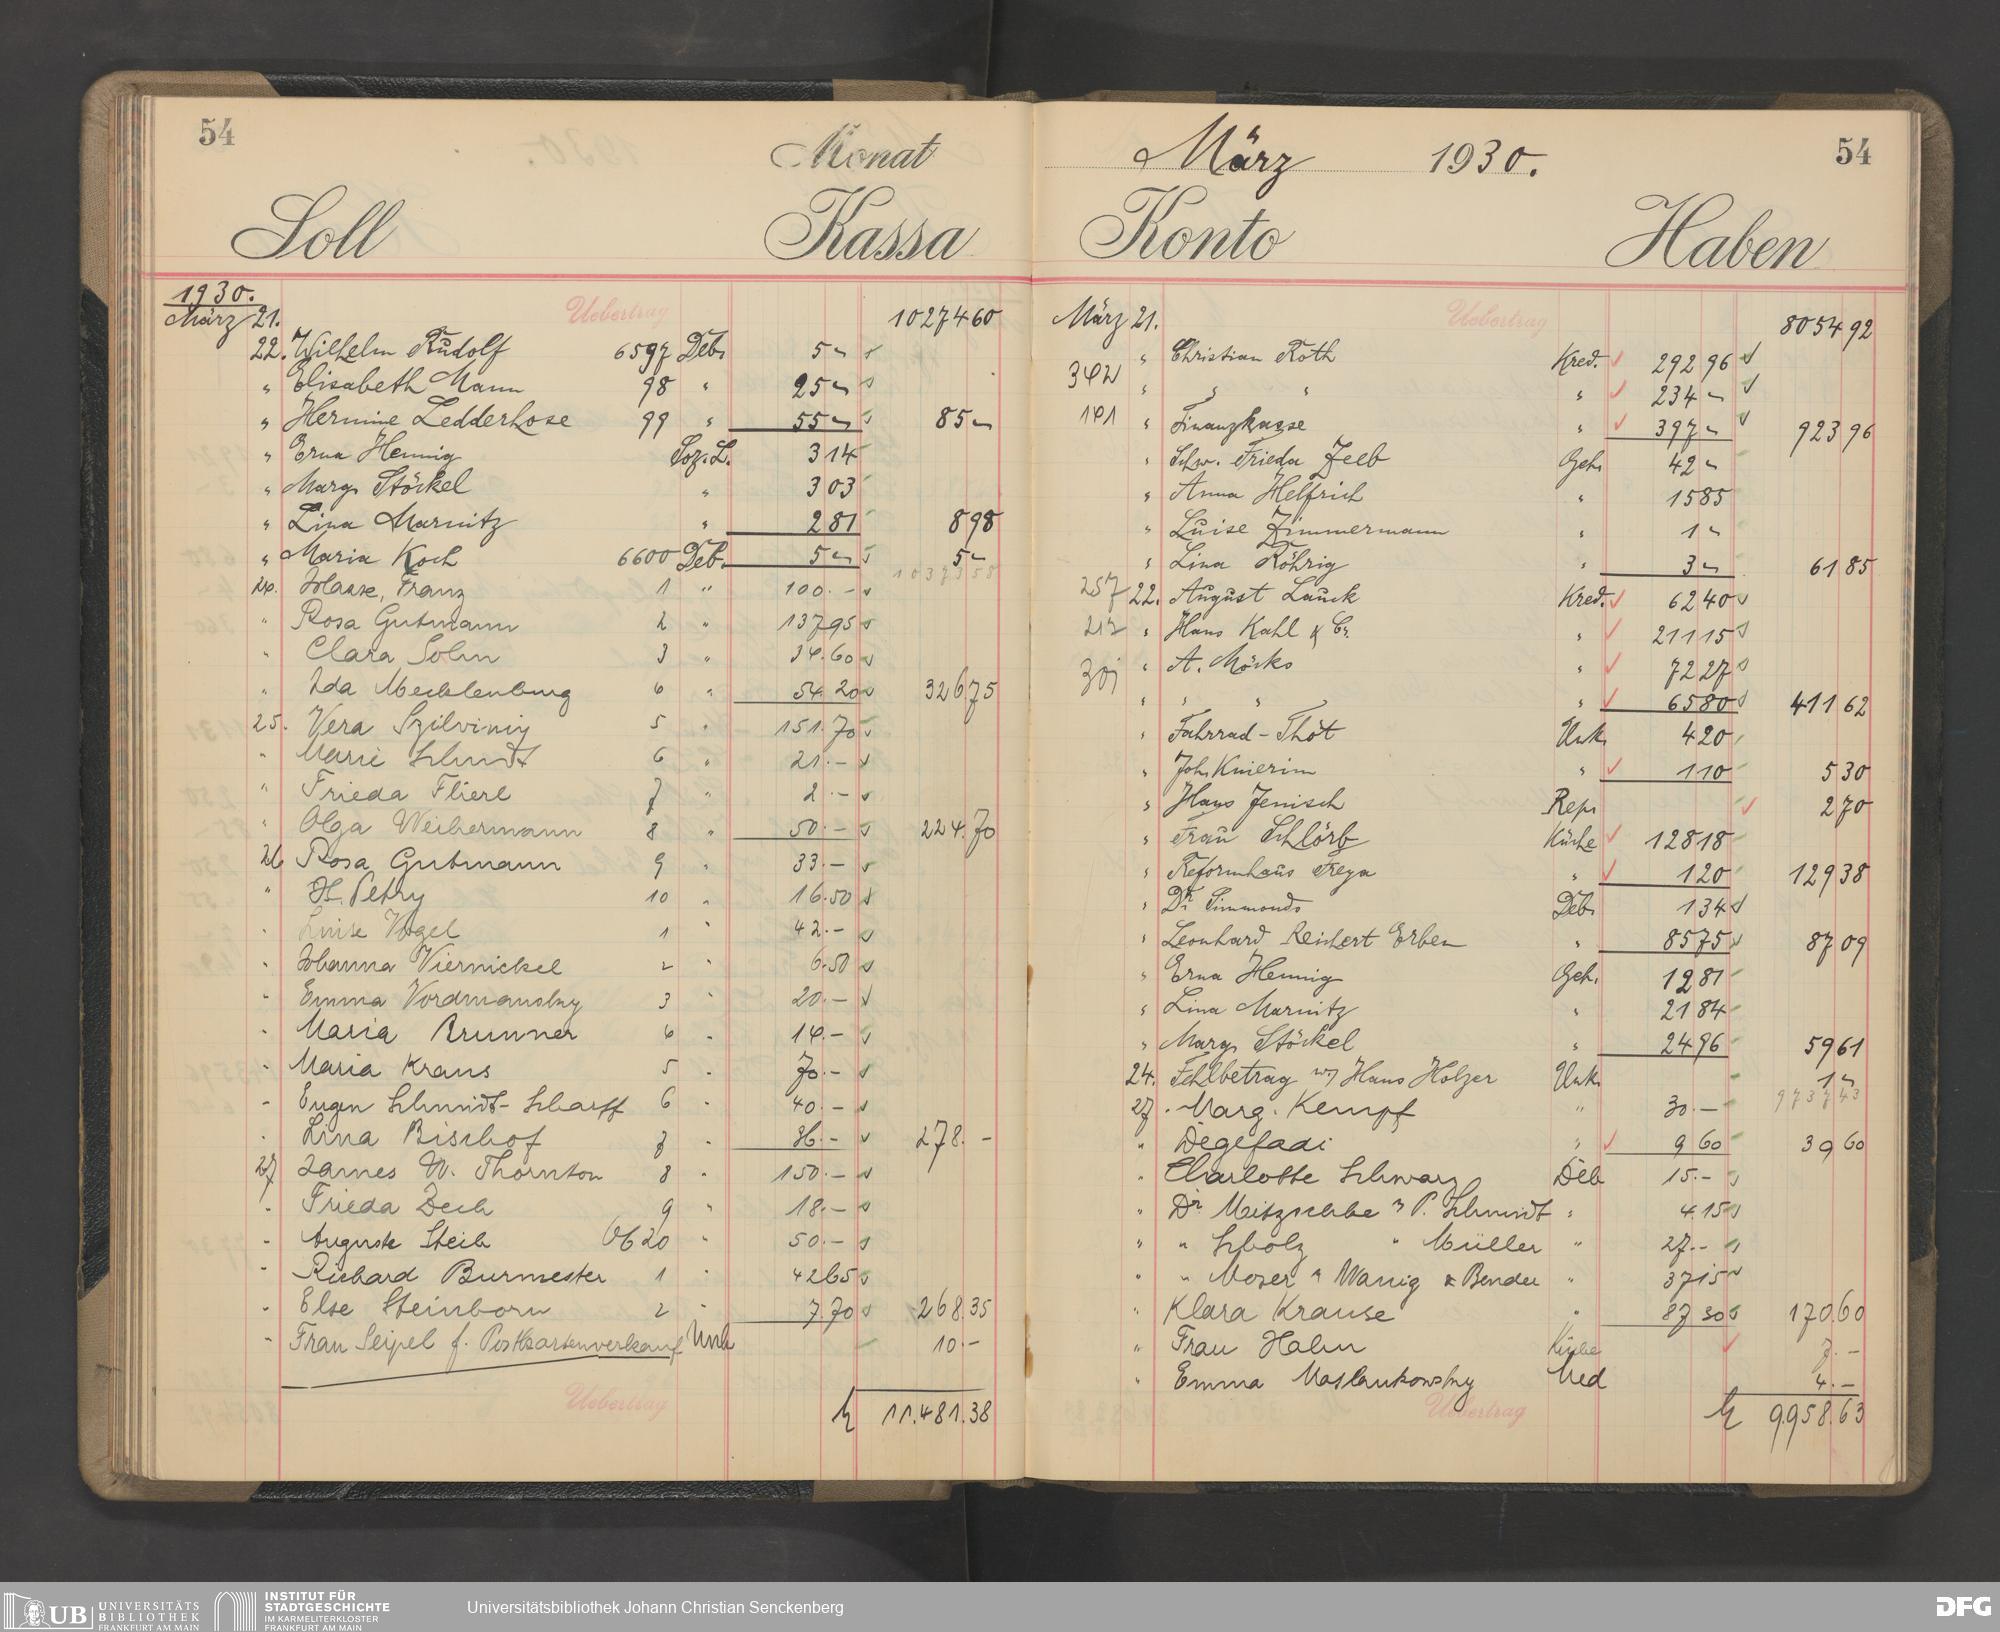 54
Monat
Soll Kassa
1930.
Uebertrag
März 21. 10274 60
22. Wilhelm Rudolf 6597 Deb. 5 -
" Elisabeth Mann 98 " 25 -
" Hermine Ledderhose 99 " 55 - 85 -
" Erna Hennig Soz. L. 3 14
" Marg. Stöckel " 3 03
" Lina Marnitz " 2 81 8 98
" Maria Koch 6600 Deb. 5 - 5 -
10373 58
24. Haase, Franz 1 " 100. -
" Rosa Gutmann 2 " 137 95
" Clara Sohn 3 " 34.60
" Ida Mecklenburg 4 " 54 20 326 75
25. Vera Szilvinyi 5 " 151. 70
" Marie Schmidt 6 " 21. -
" Frieda Flierl 7 " 2. -
" Olga Weihermann 8 " 50. - 224.70
26 Rosa Gutmann 9 " 33. -
" H. Petry 10 " 16.50
" Luise Vogel 1 " 42. -
" Johanna Viernickel 2 " 6.50
" Emma Vordmanslny 3 " 20. -
" Maria Brunner 4 " 14. -
" Maria Kraus 5 " 70. -
" Eugen Schmidt-Scharff 6 " 40. -
" Lina Bischof 7 " 36. - 278. -
27 James W. Thornton 8 " 150. -
" Frieda Zech 9 " 18. -
" Auguste Steib 6620 " 50. -
" Richard Burmester 1 " 42 65
" Else Steinborn 2 " 7.70 268.35
" Frau Seipel f. Postkartenverkauf Unk 10. -
Uebertrag
11.481.38
März 1930. 54
Konto Haben
Uebertrag
März 21. 8054 92
" Christian Roth Kred. 292 96
342 " " " " 234 -
141 " Finanzkasse " 397 - 923 96
" Schw. Frieda Zeeb Geh. 42 -
" Anna Helfrich " 15 85
" Luise Zimmermann " 1 -
" Lina Röhrig " 3 - 61 85
257 22. August Lauck Kred. 62 40
212 " Hans Kahl & Co. " 211 15
301 " A. Möcks " 72 27
" " " " 65 80 411 62
" Fahrrad-Thöt Unk. 4 20
" Joh. Knierim " 1 10 5 30
" Hans Jenisch Rep. 2 70
" Frau Schlörb Küche 128 18
" Reformhaus Freya " 1 20 129 38
" Dr. Simmonds Deb. 1 34
" Leonhard Reichert Erben " 85 75 87 09
" Erna Hennig Geh. 12 81
" Lina Marnitz " 21 84
" Marg. Stöckel " 24 96 59 61
24. Fehlbetrag Hans Holzer Unk. 1 -
9737 43
27. Marg. Kempf " 30. -
" Degefadi " 9 60 39 60
" Charlotte Schwarz Deb 15. -
" Dr. Mitzschke " P. Schmidt " 4.15
" " Scholz " Müller " 27. -
" " Moser " Warrig & Bender " 37 15
" Klara Krause " 87 30 170.60
" Frau Hahn Küche 7. -
" Emma Maslaukowsky Med 4. -
Uebertrag
9.958.63
UB UNIVERSITÄTS
BIBLIOTHEK
FRANKFURT AM MAIN
INSTITUT FÜR
STADTGESCHICHTE
IM KARMELITERKLOSTER
FRANKFURT AM MAIN
Universitätsbibliothek Johann Christian Senckenberg
DFG